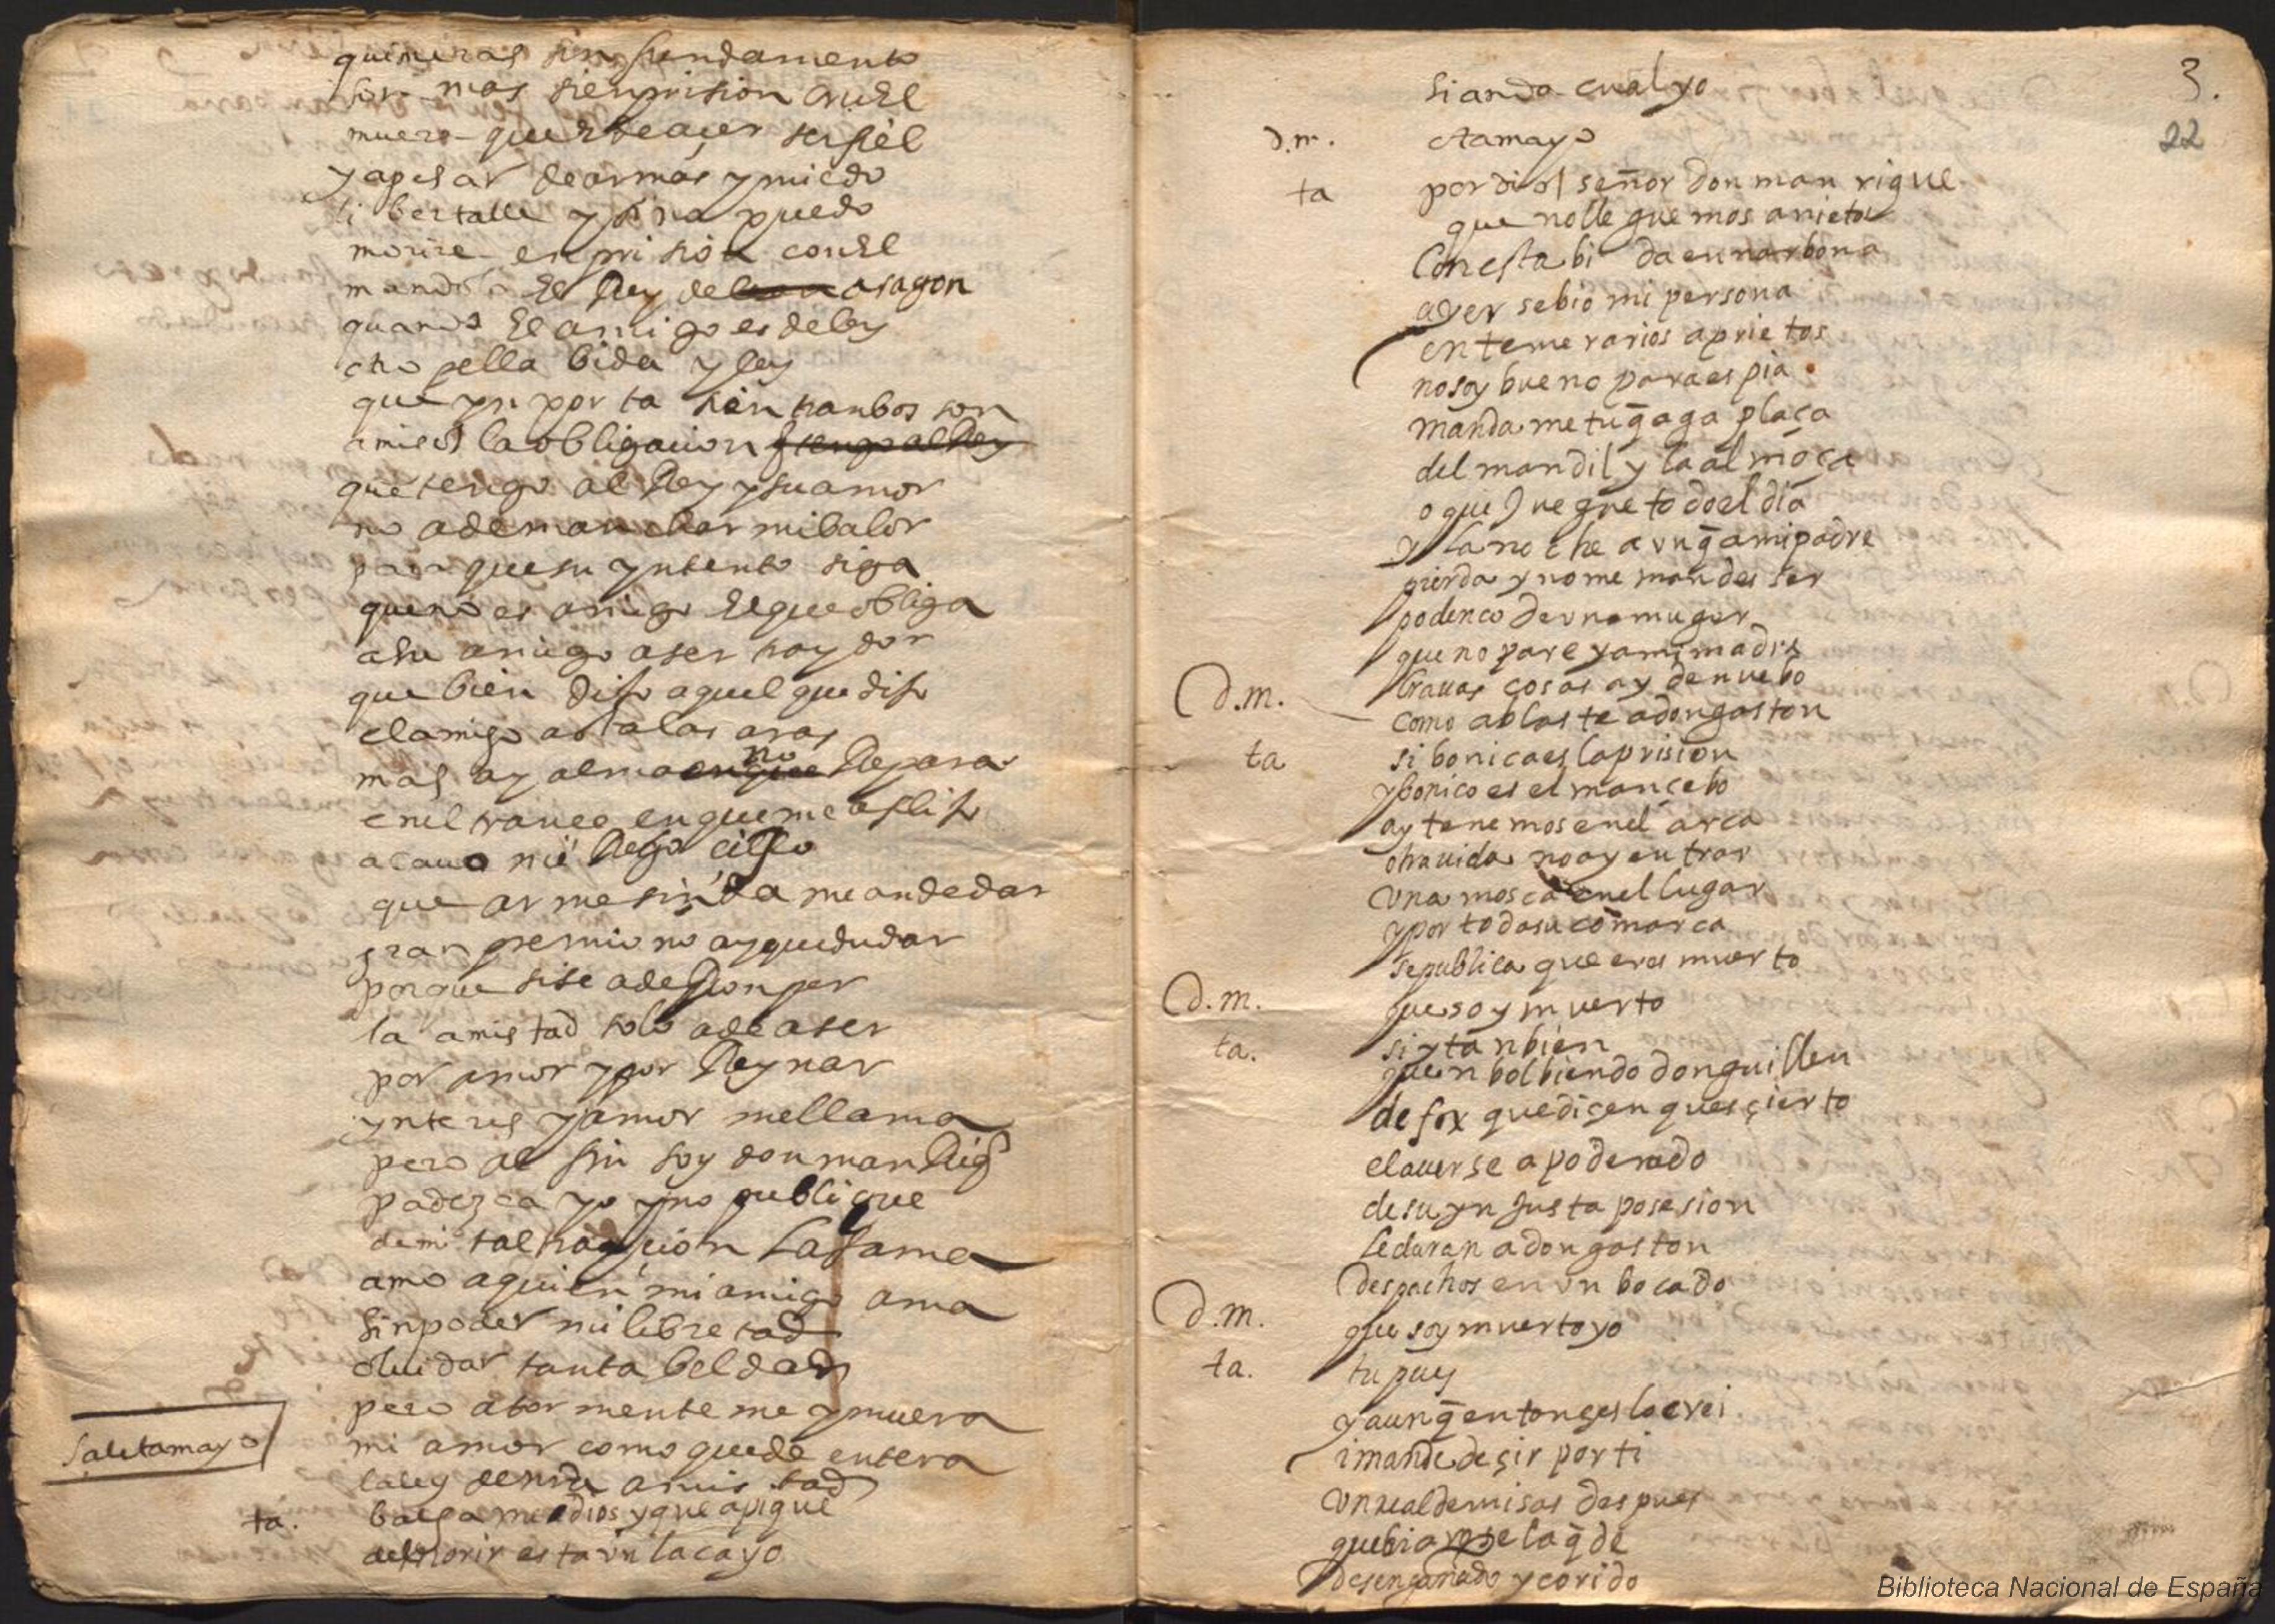 quimeras sin fundamento
for mas sienprision cruel
muero que e de açer ser fiel
y apesar de armas y miedo
libertalle y si no puedo
morire en prision con el
mando a el Rey de aragon
quando el amigo es de ley
atropella bida y ley
que ynporta si en tranbos son
amigos la obligaçion q tengo al Rey
que tengo al Rey y su amor
no a de manchar mi balor
para que su yntento siga
que no es amigo el que obliga
a su amigo a ser traydor
que bien dijo aquel que dijo
el amigo asta las aras
mas ay alma en que no Reparas
en el trançe en que me aflijo
acavo mi Regoçijo
que arme sin da me an de dar
gran premio no ay que dudar
porque si se a de Ronper
la amistad solo a de aser
por amor y por Reynar
ynteres y amor me llama
pero al fin soy don manRiq
padezca yo y no publique
de mi tal trayçion la fama
amo a quien mi amigo ama
sin poder mi libretad
oluidar tanta beldad
pero atormenteme y muera
mi amor como quede entera
la ley de nra amistad
sale tamayo
ta. balgame dios y que a pique
de morir esta vn lacayo
3.
22
si anda cual yo
d.m. a tamayo
ta por dios señor don manrique
que no lle gue mos a nietos
Con esta bi da en narbona
ayer se bio mi persona
en temerarios aprietos
no soy bueno para espia
manda me tu q̃ aga plaça
del mandil y la al moaça
o que Juegue todo el dia
y la noche a vnq̃ a mi padre
pierda y no me mandes ser
podenco de vna muger
que no pare y a mi madre
d.m. brauas cosas ay de nuebo
como ablaste a don gaston
ta si bonica es la prision
y bonico es el mançebo
ay tenemos en el arca
otra uida no ay entrar
vna mosca en el lugar
y por toda su comarca
se publica que eres muerto
d.m. que soy muerto
ta. si y tanbien
que en bolbiendo don guillen
de fox que diçen ques çierto
el auerse apoderado
de su yn Justa posesion
le daran a don gaston
despachos en vn bocado
d.m. que soy muerto yo
ta. tu pues
y aunq̃ entonçes lo crei
i mande deçir por ti
vn real de misas despues
que bi arose la q̃ de
desengañado y corido
Biblioteca Nacional de España